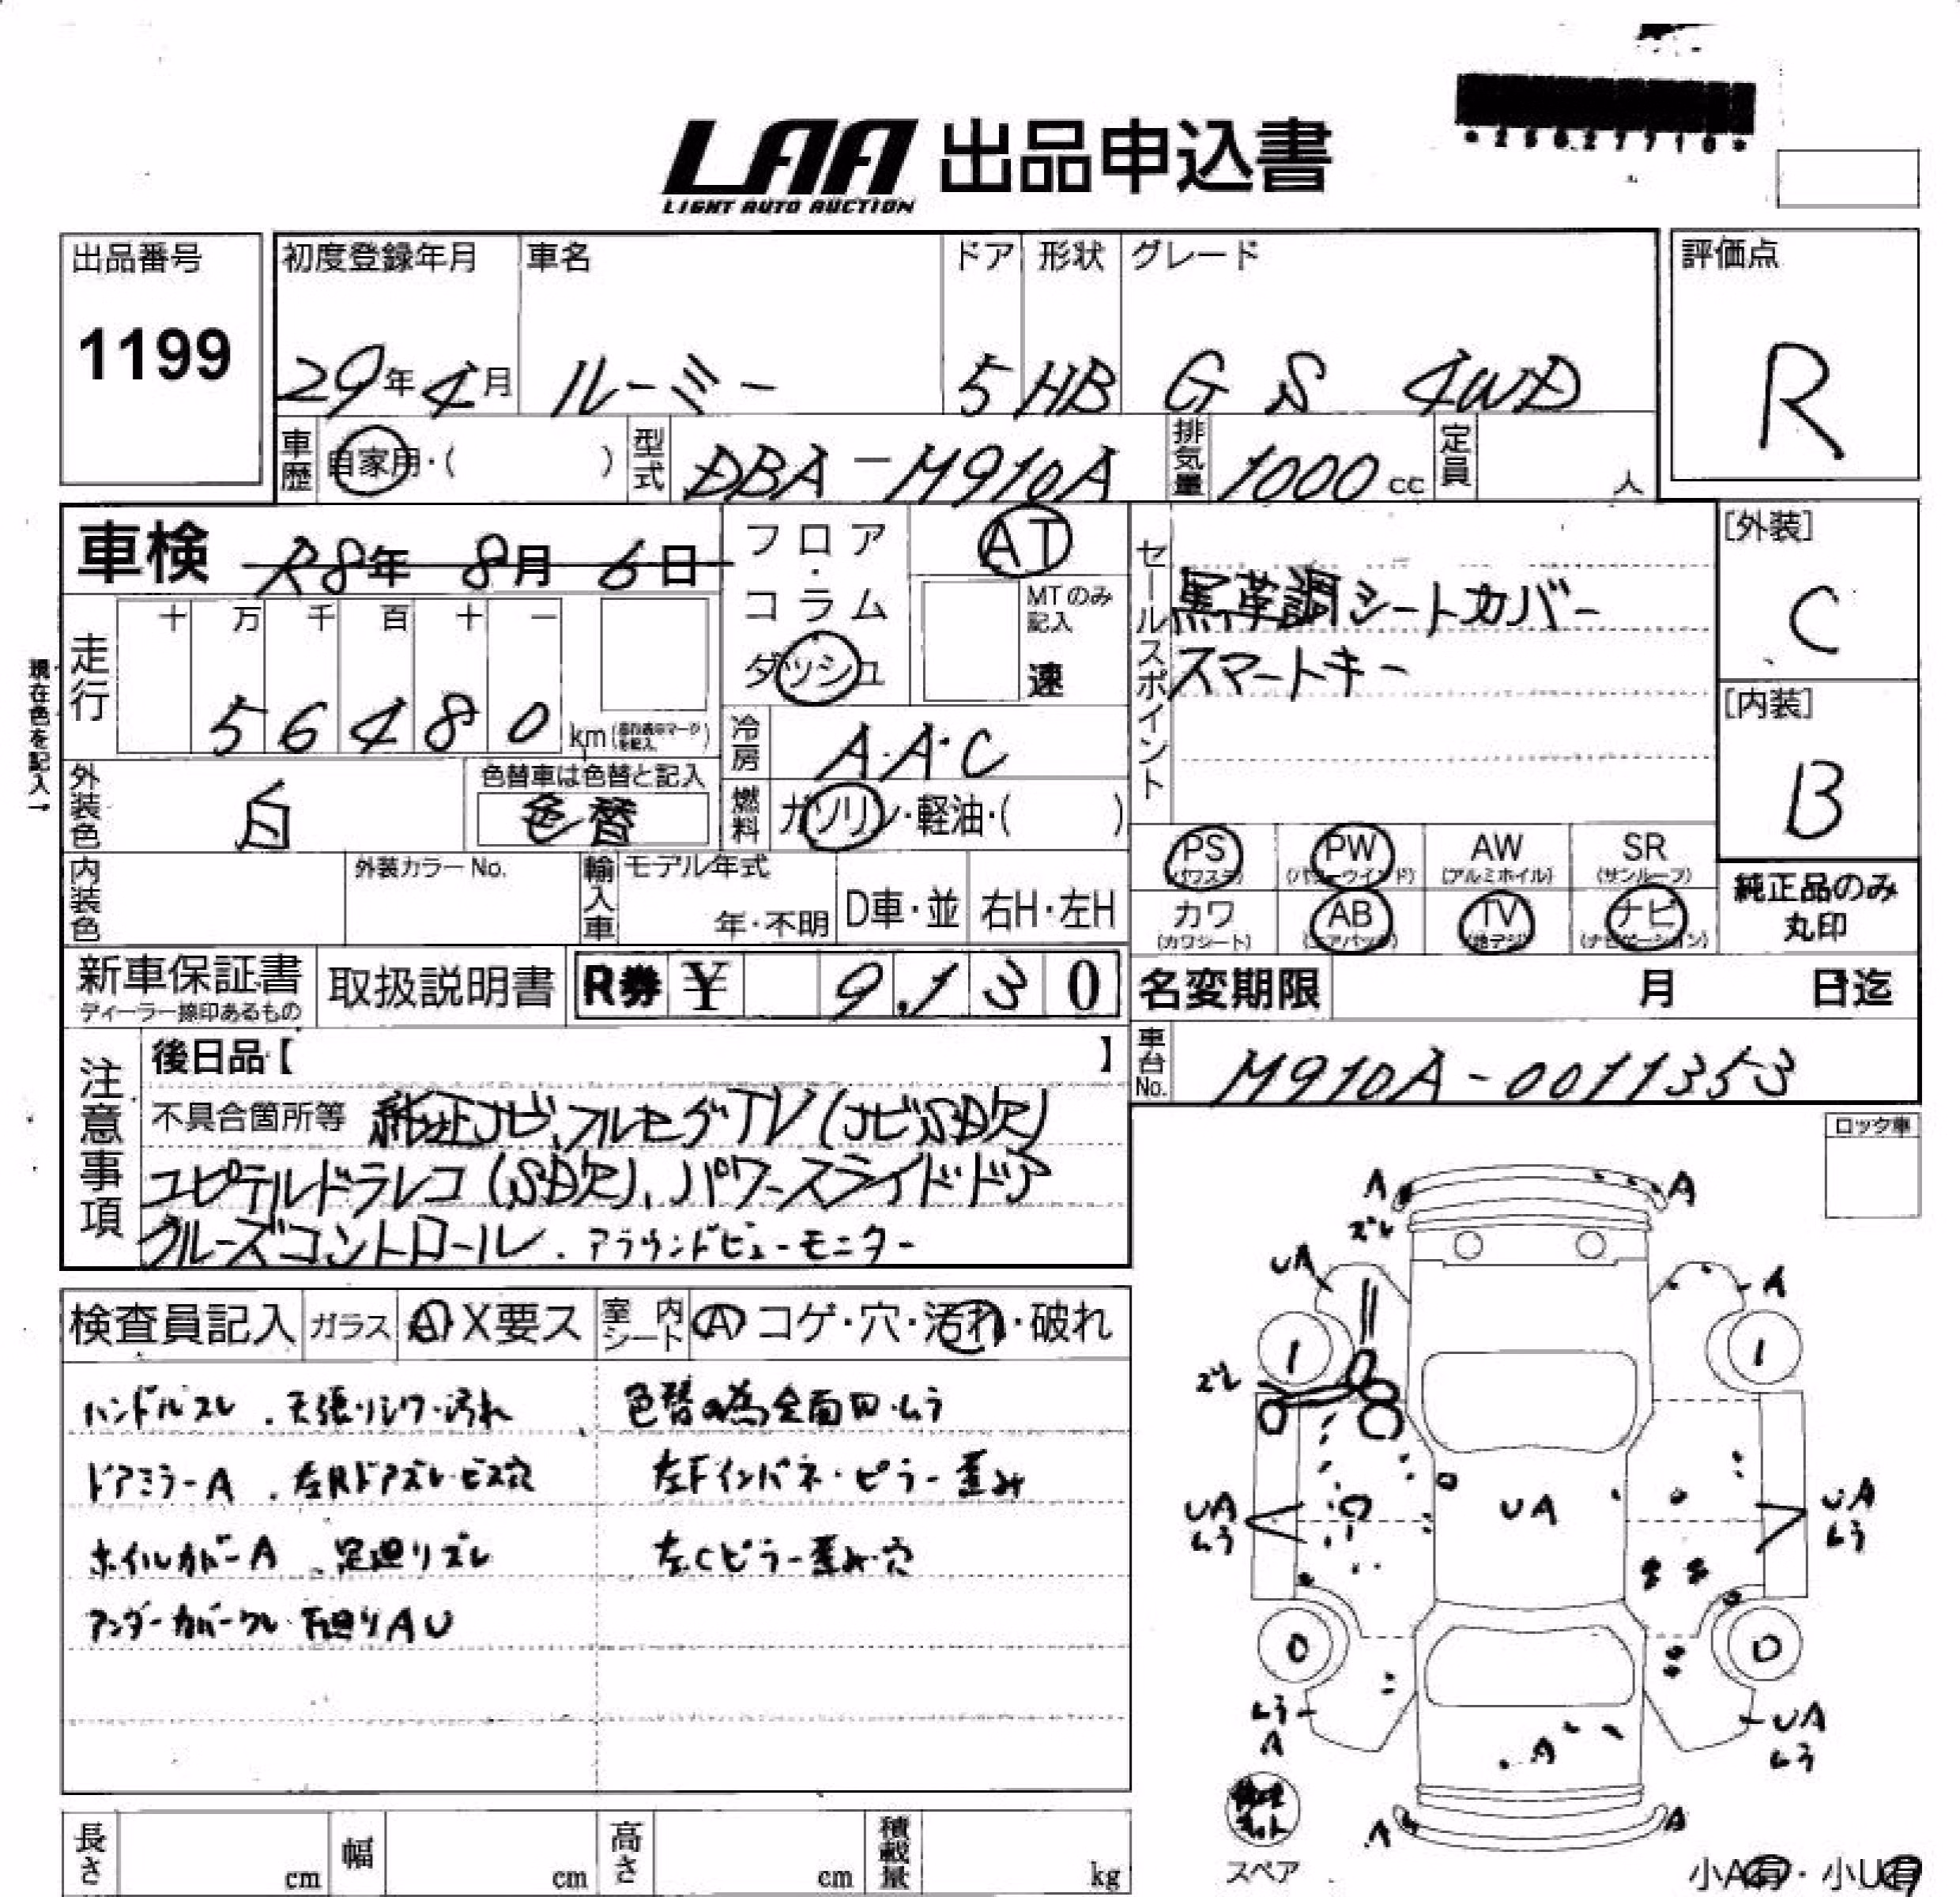 LAA 出品申込書
LIGHT AUTO AUCTION
出品番号
1199
初度登録年月
29年4月
車名
ルーミー
ドア
5
形状
HB
グレード
G S 4WD
評価点
R
車歴 自家用・( )
型式 DBA-M910A
排気量 1000cc
定員 人
車検 R8年 8月 6日
フロア・コラム
ダッシュ
AT
MTのみ記入
速
セールスポイント
黒革調シートカバー
スマートキー
[外装]
C
[内装]
B
現在色を記入→
走行
十 万 千 百 十 一
5 6 4 8 0 km
冷房 A・A・C
外装色 白
色替車は色替と記入
色替
燃料 ガソリン・軽油・( )
PS
(パワステ)
PW
(パワーウインド)
AW
(アルミホイル)
SR
(サンルーフ)
カワ
(カワシート)
AB
(エアバック)
TV
(地デジ)
ナビ
(ナビゲーション)
純正品のみ
丸印
内装色
外装カラーNo.
輸入車
モデル年式
年・不明
D車・並
右H・左H
新車保証書
ディーラー捺印あるもの
取扱説明書
R券 ¥ 9,130
名変期限 月 日迄
車台No. M910A-0011353
注意事項
後日品【 】
不具合箇所等 純正ナビ、フルセグTV(ナビSD欠)
ユピテルドラレコ(SD欠)、パワースライドドア
クルーズコントロール、アラウンドビューモニター
ロック車
検査員記入
ガラス A X要ス
室内シート A コゲ・穴・汚れ・破れ
ハンドルスレ、天張りシワ・汚れ
ドアミラーA、左Rドアズレ・ビス穴
ホイルカバーA、足廻りズレ
アンダーカバーワレ 下廻りAU
色替の為全面凹・ムラ
左Fインパネ・ピラー歪み
左Cピラー歪み・穴
A
ズレ
A
UA
A
1
1
ズレ
UA
ムラ
UA
UA
ムラ
0
0
ムラ
A
A
UA
ムラ
A
A
スペア
小A有・小U有
長さ cm
幅 cm
高さ cm
積載量 kg